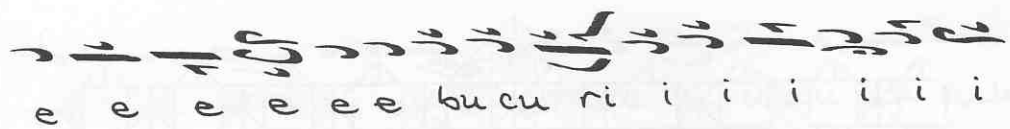 e e e e e e bu cu ri i i i i i i